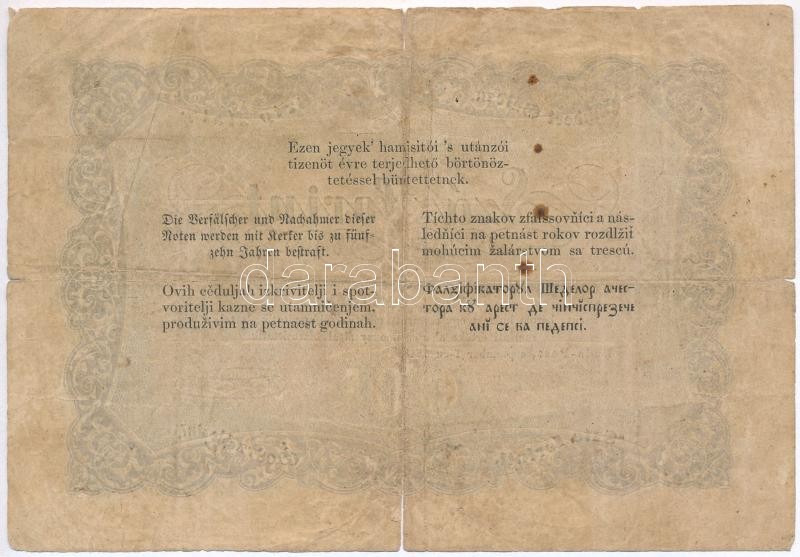 Ezen jegyek' hamisitói 's utánzói
tizenöt évre terjedhető börtönöz-
tetéssel büntettetnek.
Die Verfälscher und Nachahmer dieser
Noten werden mit Kerker bis zu fünf-
zehn Jahren bestraft.
Tíchto znakov zfalssovňíci a nás-
ledňíci na petnást rokov rozdlžiť
mohúcim žalárstvom sa trescú.
Ovih cěduljah izkrivitelji i spot-
voritelji kazne se utamničenjem,
produživim na petnaest godinah.
Фалсіфікаторꙋл Шеделор ачес-
тора кꙋ арест де чінчіспрезече
ані се ва педепсі.
darabanth